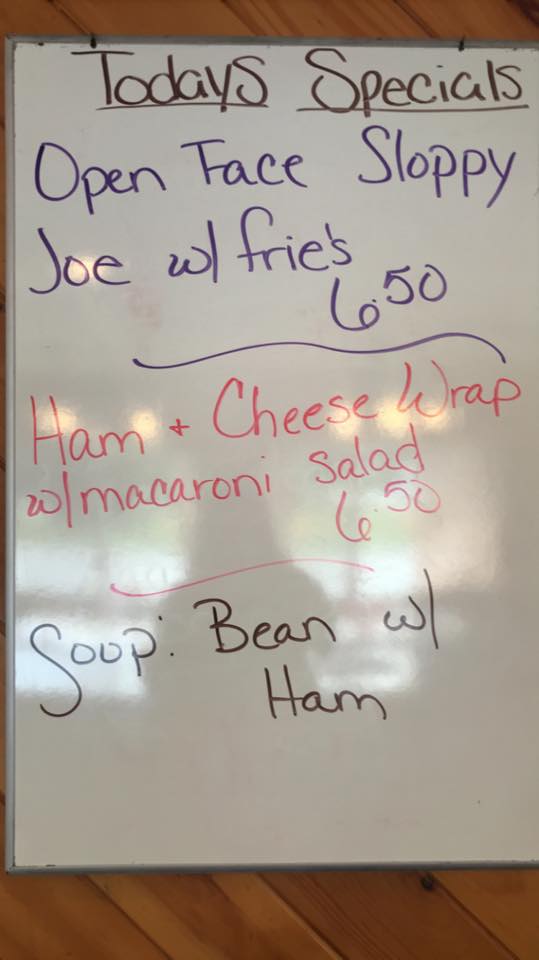 Todays Specials
Open Face Sloppy
Joe w/ frie's
6.50
Ham + Cheese Wrap
w/macaroni salad
6.50
Soup: Bean w/
Ham